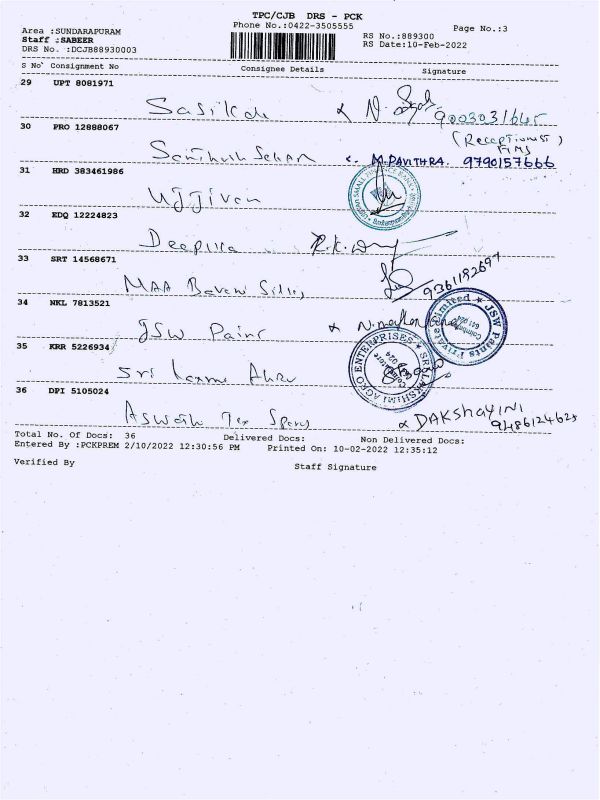 TPC/CJB DRS - PCK
Phone No.:0422-3505555
Page No.:3
Area :SUNDARAPURAM
Staff :SABEER
DRS No. :DCJB88930003
RS No.:889300
RS Date:10-Feb-2022
S No Consignment No Consignee Details Signature
29 UPT 8081971
9003031645
30 PRO 12888067
(Receptionist)
FIMS
M.PAVITHRA. 9790157666
31 HRD 383461986
Ujjivan
32 EDQ 12224823
Deepika
33 SRT 14568671
9361182697
34 NKL 7813521
JSW Paints
JSW Paints Private Limited
Coimbatore
35 KRR 5226934
SRI LAKSHMI AGRO ENTERPRISES
Coimbatore
36 DPI 5105024
DAKShAYINI
Total No. Of Docs: 36 Delivered Docs: Non Delivered Docs:
Entered By :PCKPREM 2/10/2022 12:30:56 PM Printed On: 10-02-2022 12:35:12
Verified By Staff Signature